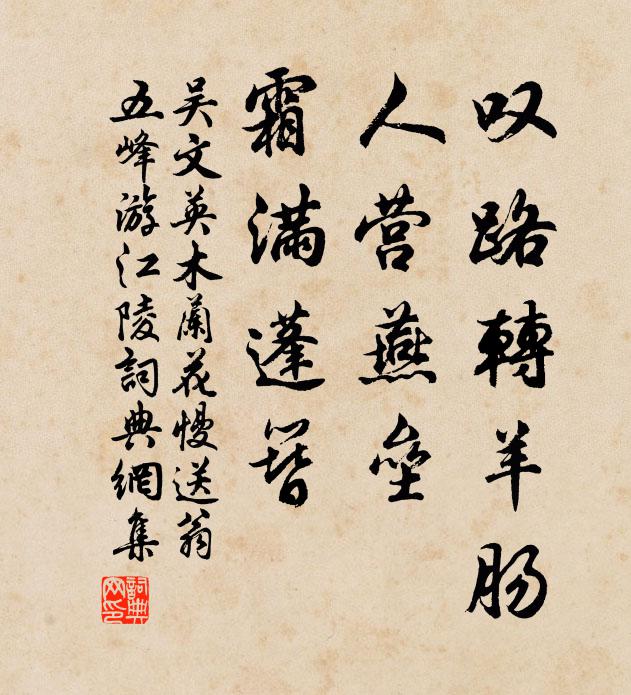 叹路轉羊肠
人营燕垒
霜满蓬簪
吴文英木蘭花慢送翁
五峰游江陵詞典網集
詞典
网印